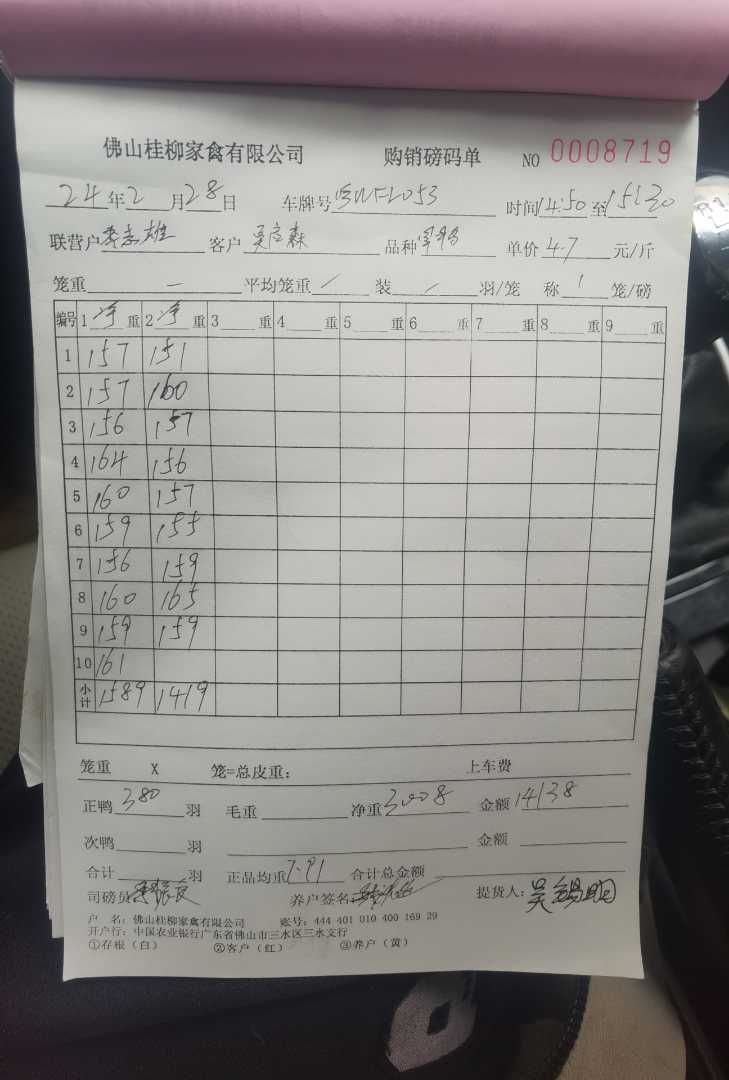 佛山桂柳家禽有限公司 购销磅码单 NO 0008719
24年2月28日 车牌号 WFL053 时间14:50至15:30
联营户李志雄 客户吴应森 品种 单价4.7元/斤
笼重 — 平均笼重 / 装 / 羽/笼 称 1 笼/磅
编号 1 净 重 2 净 重 3 重 4 重 5 重 6 重 7 重 8 重 9 重
1 157 151
2 157 160
3 156 157
4 164 156
5 160 157
6 159 155
7 156 159
8 160 165
9 159 159
10 161
小计 1589 1419
笼重 X 笼=总皮重: 上车费
正鸭 380 羽 毛重 净重 3008 金额 14138
次鸭 羽 金额
合计 羽 正品均重 7.91 合计总金额
司磅员 养户签名: 提货人: 吴锡明
户 名: 佛山桂柳家禽有限公司 账号: 444 401 010 400 169 29
开户行: 中国农业银行广东省佛山市三水区三水支行
①存根(白) ②客户(红) ③养户(黄)